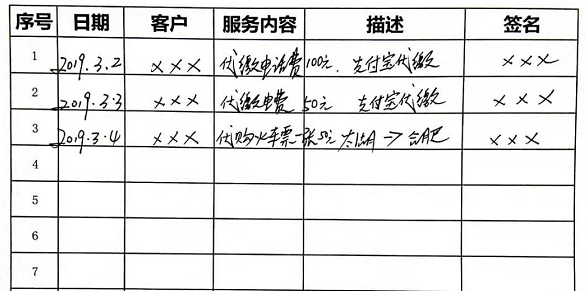 序号 日期 客户 服务内容 描述 签名
1 2019.3.2 ××× 代缴电话费100元. 支付宝代缴 ×××
2 2019.3.3 ××× 代缴电费 50元 支付宝代缴 ×××
3 2019.3.4 ××× 代购火车票一张50元 太湖→合肥 ×××
4
5
6
7